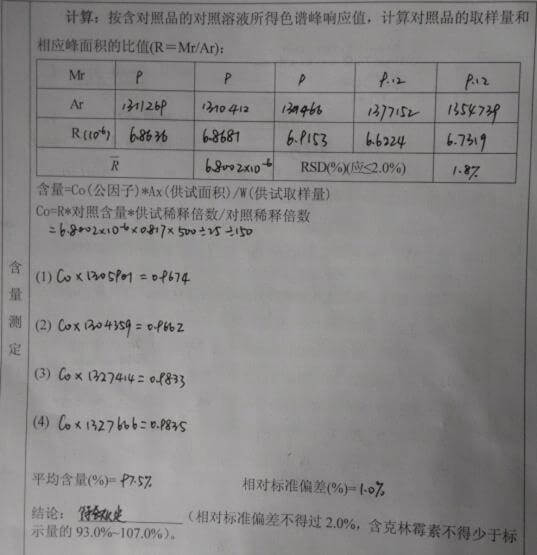 计算：按含对照品的对照溶液所得色谱峰响应值，计算对照品的取样量和
相应峰面积的比值(R＝Mr/Ar)：
Mr 9 9 9 9.12 9.12
Ar 1311269 1310412 1301466 1377152 1354739
R(10⁻⁶) 6.8636 6.8681 6.9153 6.6224 6.7319
R̄ 6.8002×10⁻⁶ RSD(%)(应≤2.0%) 1.8%
含量=Co(公因子)*Ax(供试面积)/W(供试取样量)
Co=R*对照含量*供试稀释倍数/对照稀释倍数
=6.8002×10⁻⁶×0.817×500÷25÷150
含量测定
(1) Co×1305901=0.9674
(2) Co×1304359=0.9662
(3) Co×1327414=0.9833
(4) Co×1327666=0.9835
平均含量(%)=97.5% 相对标准偏差(%)=1.0%
结论：符合规定（相对标准偏差不得过 2.0%，含克林霉素不得少于标
示量的 93.0%~107.0%）。